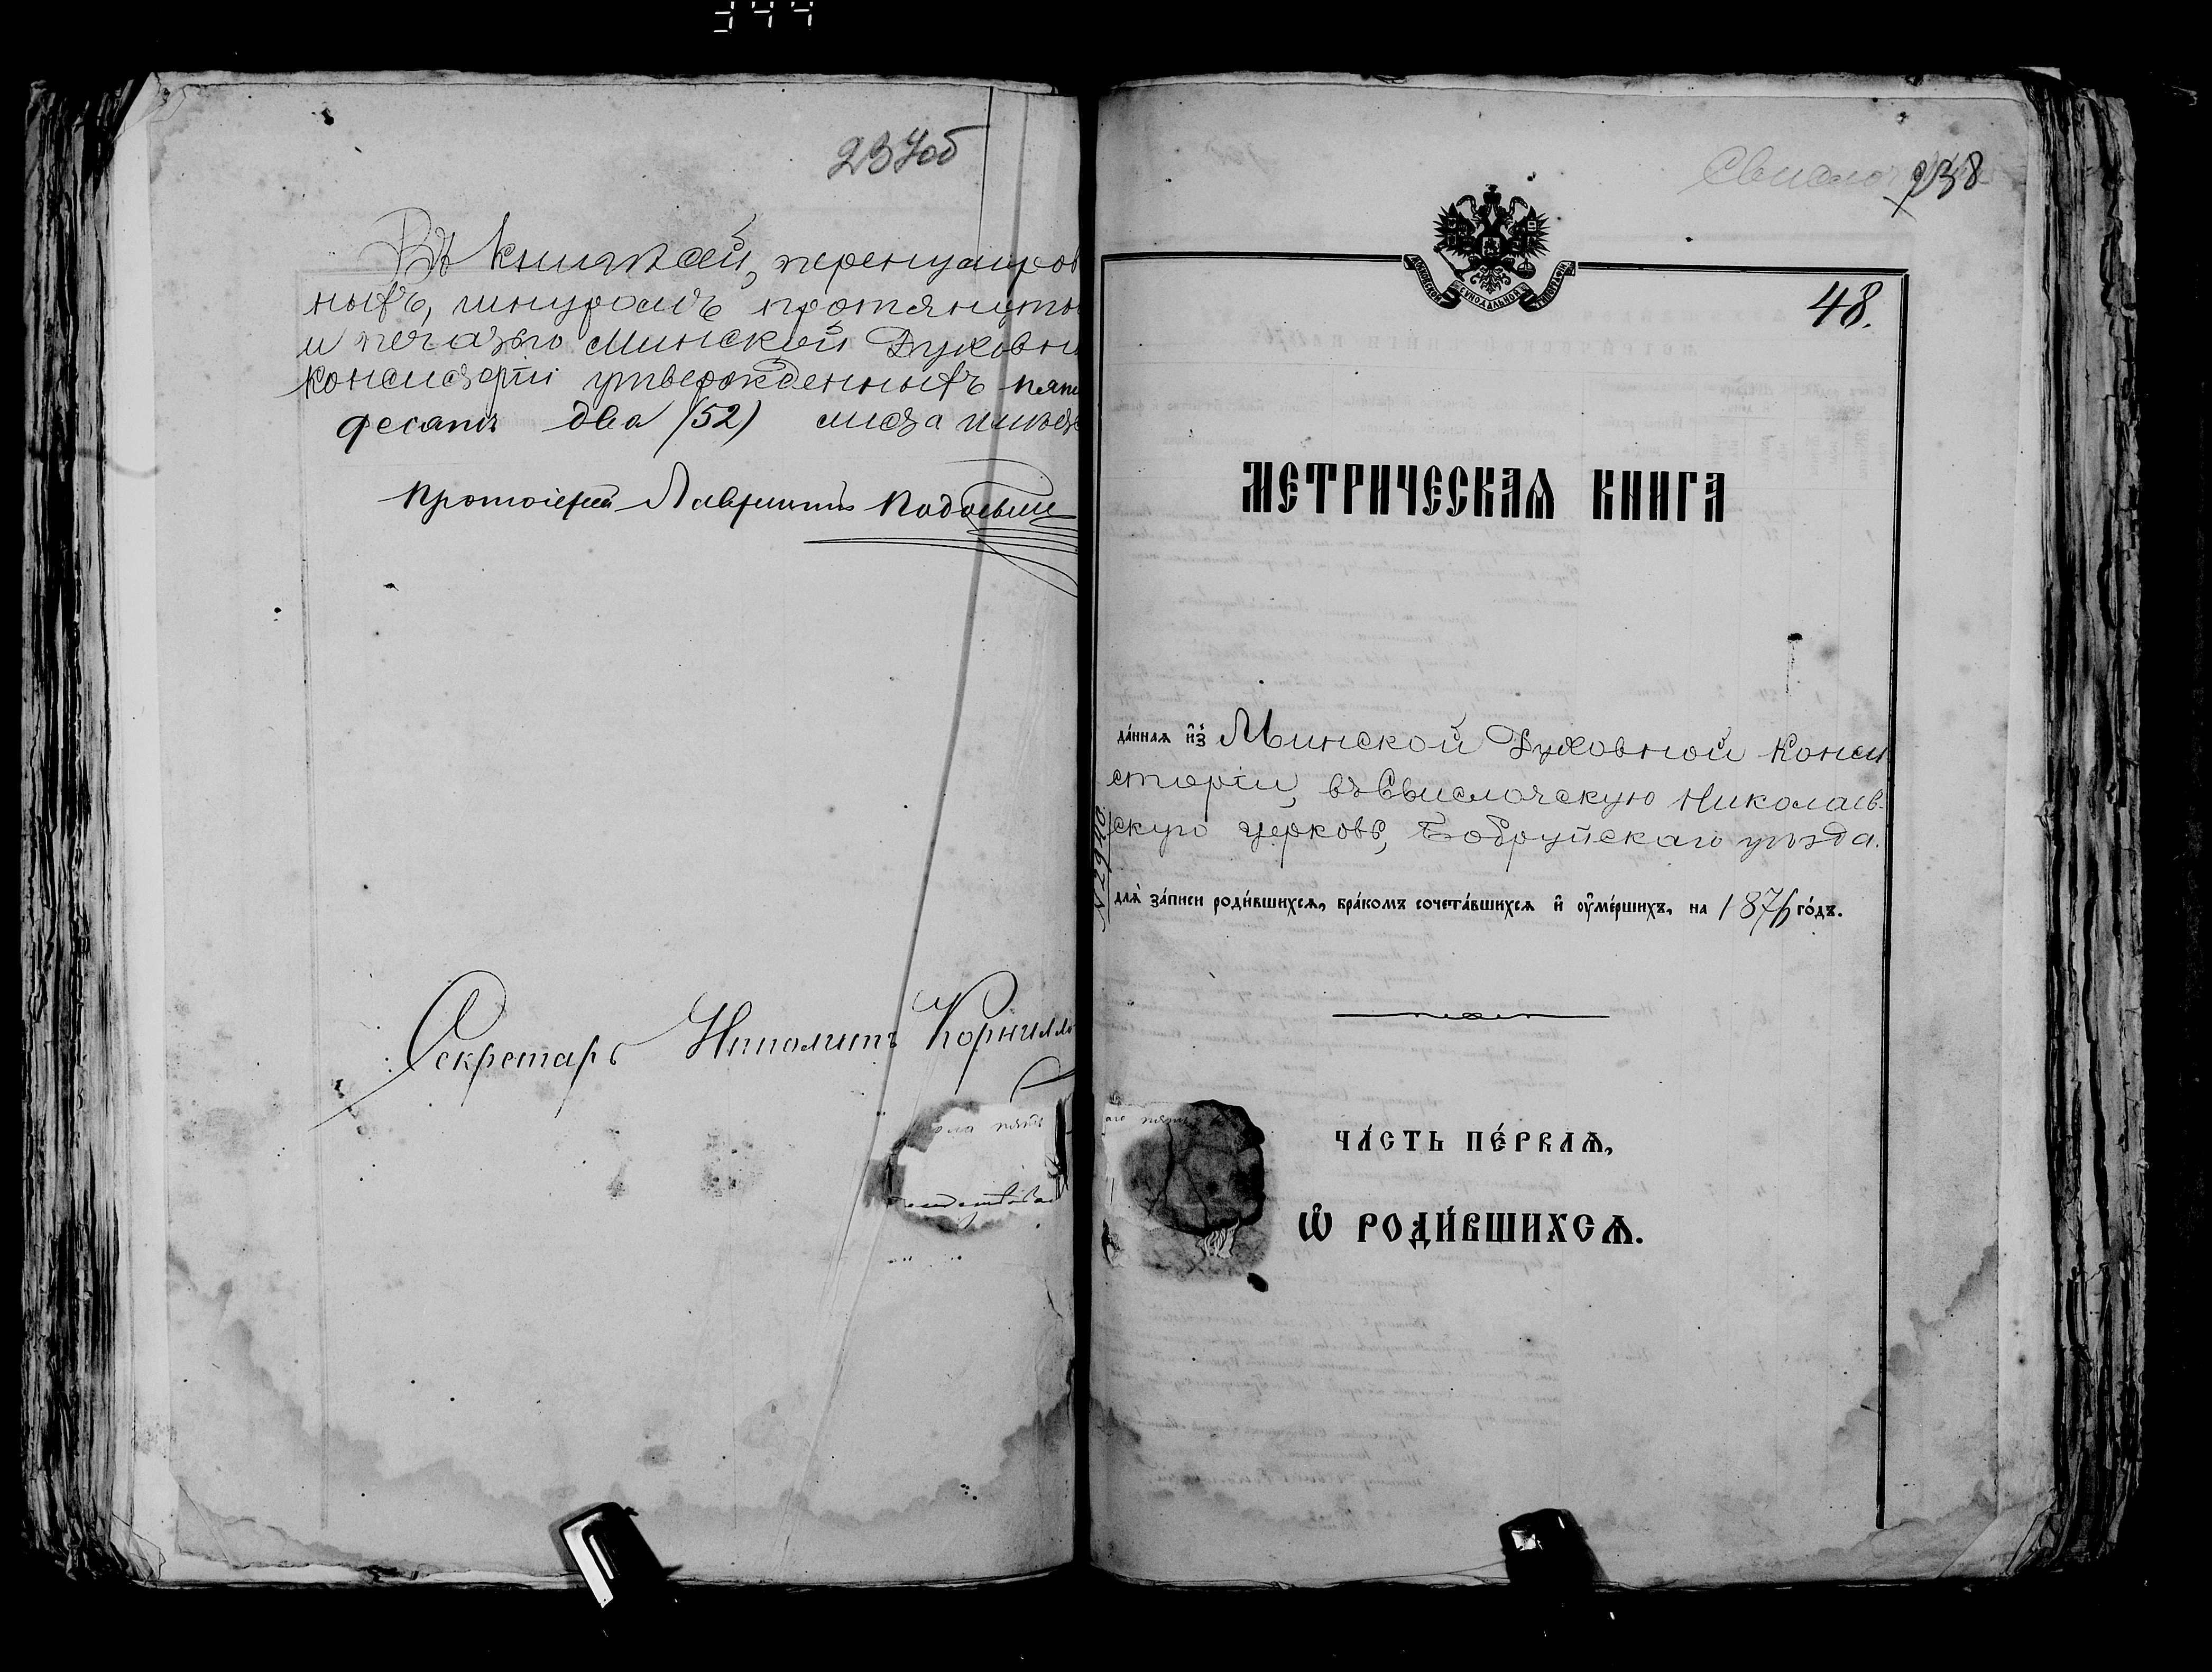 344
237об
Въ книгѣ сей, перенумеров
ныхъ, шнуромъ протянуты
и печатью Минской Духовн
Консисторіи утвержденныхъ пять
десятъ два (52) листа
Протоіерей Лаврентій
Секретарь Ипполитъ Корнилло
238
МОСКОВСКОЙ СѴНОДАЛЬНОЙ ТИПОГРАФІИ
48.
МЕТРИЧЕСКАѦ КНИГА
да́ннаѧ и҆з̾ Минской Духовной Конси
сторіи, въ Свислочскую Николаев-
скую церковь, Бобруйскаго уѣзда.
№ 2940.
длѧ̀ за́писи роди́вшихсѧ, бра́комъ сочета́вшихсѧ и҆ ᲂу҆ме́ршихъ, на 1876 го́дъ.
ЧА́СТЬ ПЕ́РВАѦ,
Ѡ҆ РОДИ́ВШИХСѦ.